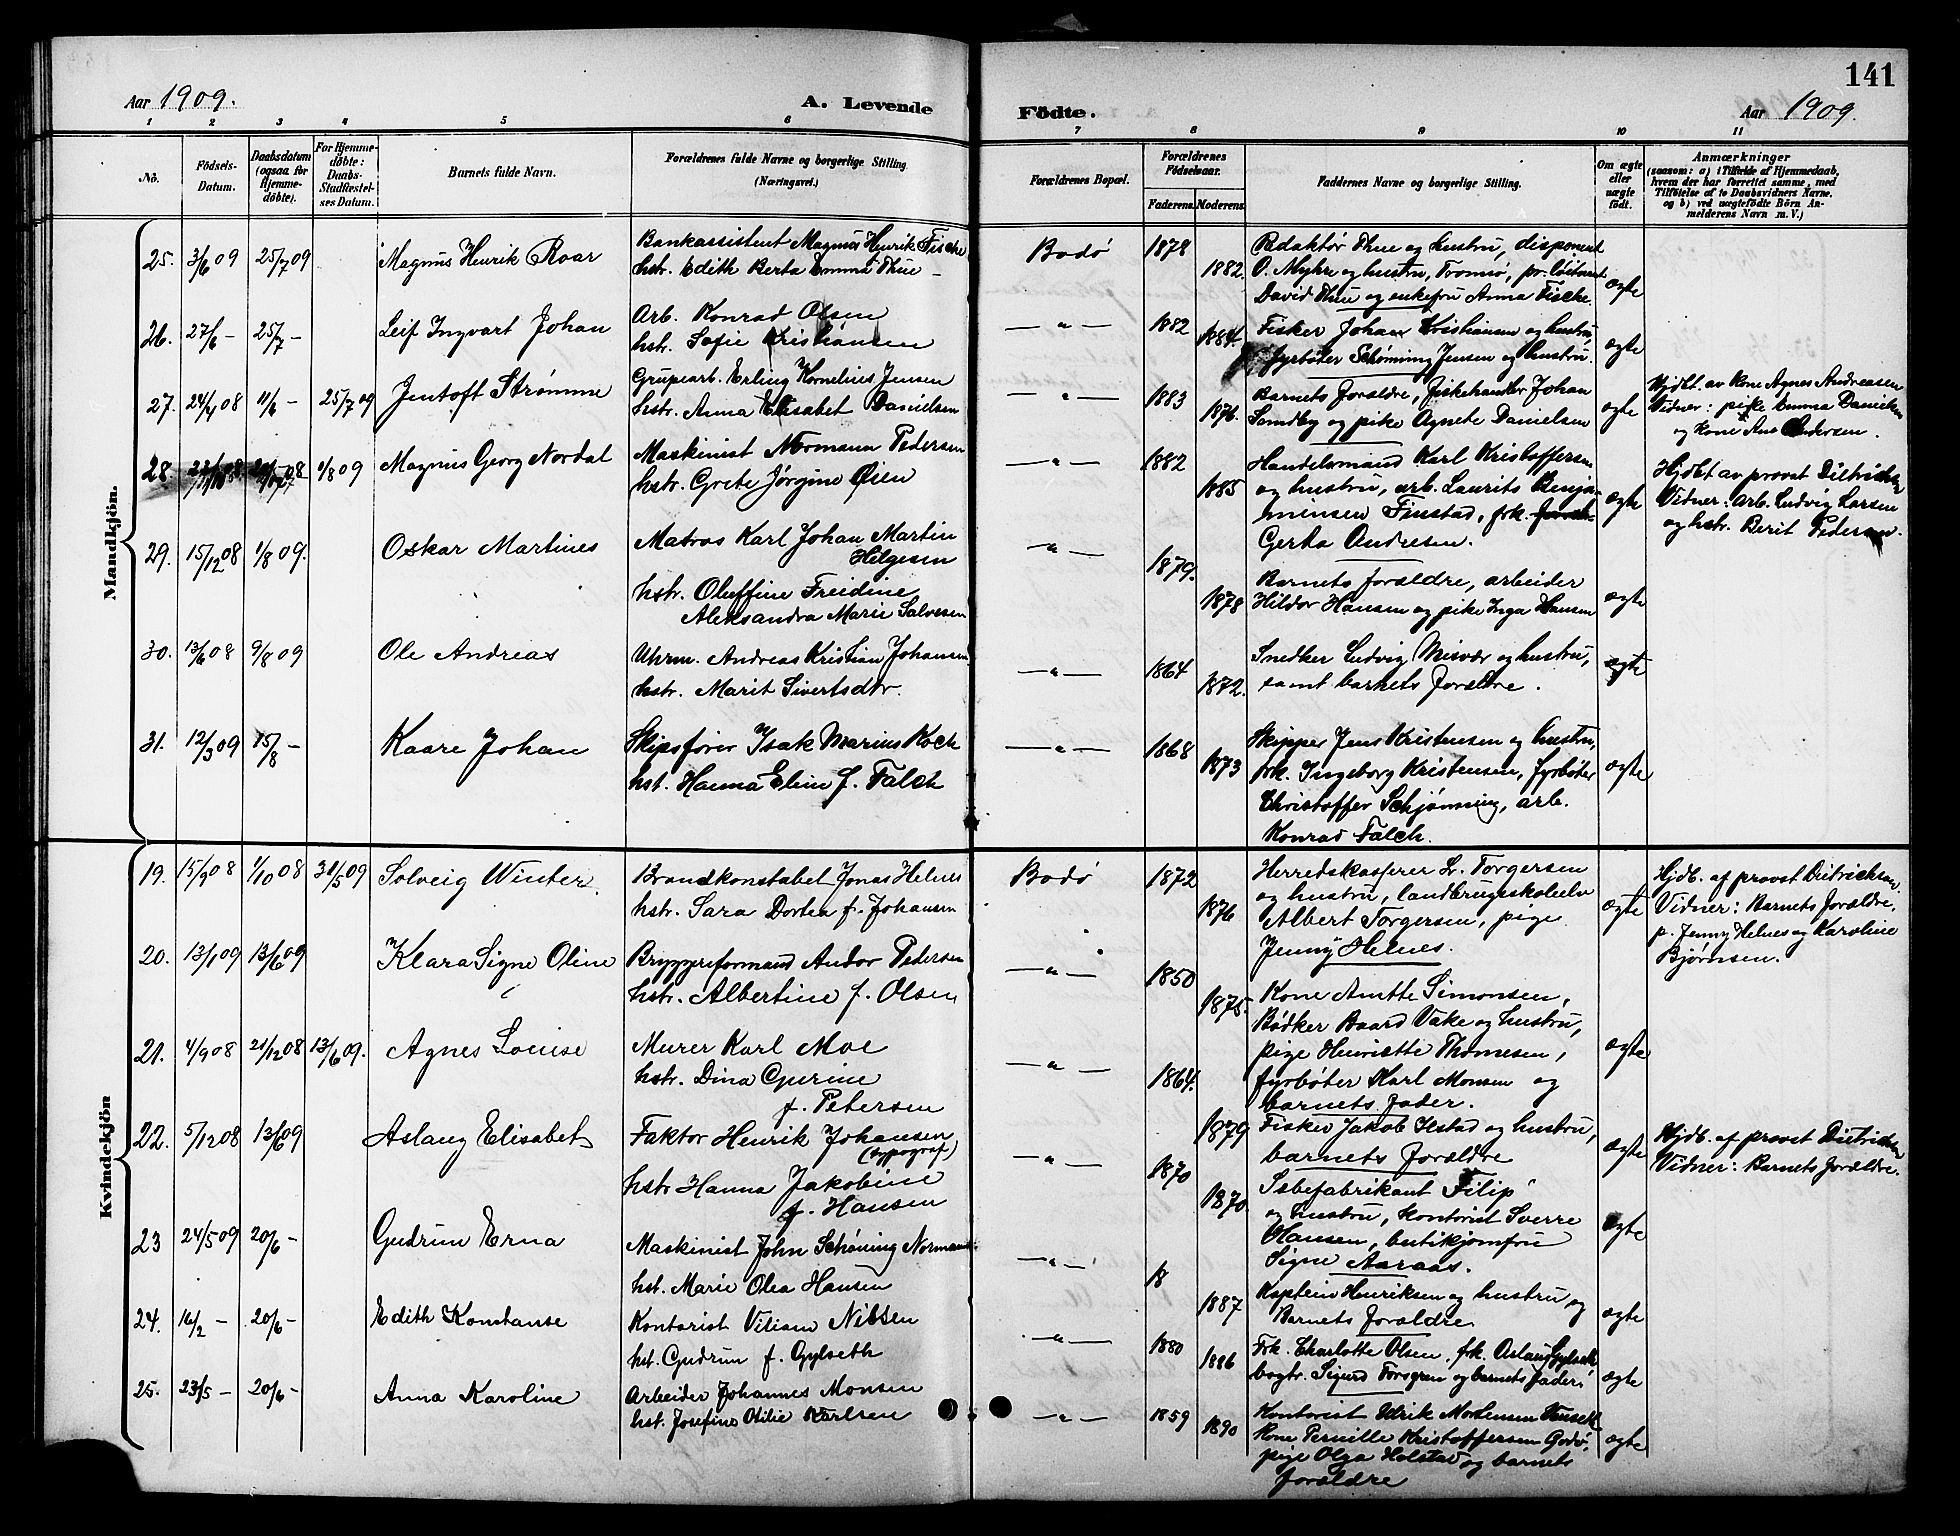 141
Aar 1909. A. Levende Födte. Aar 1909.
1 2 3 4 5 6 7 8 9 10 11
No.
Födsels-
Datum.
Daabsdatum
(ogsaa for
Hjemme-
døbte).
For Hjemme-
døbte:
Daabs-
Stadfæstel-
ses Datum.
Barnets fulde Navn.
Forældrenes fulde Navne og borgerlige Stilling
(Næringsvei.)
Forældrenes Bopæl.
Forældrenes
Födselsaar.
Faderens Moderens
Faddernes Navne og borgerlige Stilling.
Om ægte
eller
uægte
født.
Anmærkninger
(saasom: a) i Tilfælde af Hjemmedaab,
hvem der har forrettet samme, med
Tilföielse af to Daabsvidners Navne,
og b) ved uægtefödte Börn An-
melderens Navn m. V.)
Mandkjön.
25. 3/6 09 25/7 09 Magnus Henrik Roar
Bankassistent Magnus Henrik Fische
hstr. Edith Berta Emma Thue –
Bodø 1878 1882.
Redaktør Thue og hustru, disponent
O. Myhre og hustru, Tromsø, pr. løitnant
David Thue og enkefru Anna Fische
ægte
26. 27/6 – 25/7 – Leif Ingvart Johan
Arb. Konrad Olsen
hstr. Sofie Kristiansen
— " — 1882 1884.
Fisker Johan Kristiansen og hustru,
fyrbøter Schønning Jensen og hustru.
ægte
27. 24/4 08 11/6 – 25/7 09 Jentoft Strømme
Grupearb. Erling Kornelius Jensen
hstr. Anna Elisabet Danielsen
— " — 1883 1876.
Barnets forældre, fiskehandler Johan
Sandby og pike Agnete Danielsen
ægte
Hjdbt. av kone Agnes Andreasen
Vidner: pike Emma Danielsen
og kone Ane Andersen.
28. 1/8 09 Magnus Georg Nordal
Maskinist Normann Pedersen
hstr. Grete Jørgine Olsen
— " — 1882 1885
Handelsmand Karl Kristoffersen
og hustru, arb. Laurits Benja-
mensen Finstad, frk.
Gerda Andresen.
ægte
Hjdbt av provst Dietrichsen
Vidner: Arb. Ludvig Larsen
og hstr. Berit Pedersen.
29. 15/12 08 1/8 09. Oskar Martines
Matros Karl Johan Martin
Helgesen
hstr. Oluffine Freidine
Aleksandra Marie Salvesen
— " — 1879. 1878
Barnets forældre, arbeider
Hildor Hansen og pike Inga Hansen
ægte
30. 13/6 08 9/8 09 Ole Andreas
Uhrm. Andreas Kristian Johansen
hstr. Marit Sivertsdtr.
— " — 1864 1872.
Snedker Ludvig Misvær og hustru,
samt barnets forældre.
ægte
31. 12/3 09 15/8 – Kaare Johan
Skipsfører Isak Marius Koch
hst. Hanna Eline f. Falch
— " — 1868 1873
Skipper Jens Kristensen og hustru,
frk. Ingeborg Kristensen, fyrbøter
Christoffer Schjønning, arb.
Konrad Falch.
ægte
Kvindekjön
19. 15/9 08 1/10 08 31/5 09 Solveig Winter.
Brandkonstabel Jonas Helnes
hstr. Sara Dortea f. Johansen
Bodø 1872 1876
Herredskasserer L. Torgersen
og hustru, landbrugsskoleelv
Albert Torgersen, pige
Jenny Helnes.
ægte
Hjdb. af provst Dietrichsen.
Vidner: Barnets forældre,
p. Jenny Helnes og Karoline
Bjørnsen.
20. 13/1 09 13/6 09 Klara Signe Oline
Bryggeformand Andor Pedersen
hstr. Albertine f. Olsen
— " — 1850 1875.
Kone Anette Simonsen,
Bødker Baard Vake og hustru,
pige Henriette Thomesen,
fyrbøter Karl Monsen og
barnets fader.
ægte
21. 4/9 08 21/12 08 13/6 09. Agnes Louise
Murer Karl Moe
hstr. Dina Gurine
f. Petersen
— " — 1864. 1879
Fisker Jakob Ilstad og hustru,
barnets forældre
ægte
Hjdb. af provst Dietrichsen
Vidner: Barnets forældre.
22. 5/12 08 13/6 09 Aslaug Elisabet
Faktor Henrik Johansen
(typograf)
hstr Hanna Jakobine
f. Hansen
— " — 1870 1870.
Sebefabrikant Filip
og hustru, kontorist Sverre
Hansen, butikjomfru
Signe Aaraas.
ægte
23 24/5 09 20/6 – Gudrun Erna
Maskinist John Schøning Normann
hst. Marie Olea Hansen
— " — 18 1887
Kaptein Henriksen og hustru, og
Barnets forældre
ægte
24. 16/2 – 20/6 – Edith Konstanse
Kontorist Viliam Nilsen
hst. Gudrun f. Gylseth
— " — 1880 1886
Frk. Charlotte Olsen, frk. Aslaug Gylseth
bogtr. Sigurd Forsgren og barnets fader
ægte
25. 23/5 – 20/6 – Anna Karoline
Arbeider Johannes Monsen
hst. Josefine Otilie Karlsen
— " — 1859 1890
Kontorist Ulrik Mortensen
Kone Pernille Kristoffersen Godø,
pige Olga Holstad og barnets
forældre
ægte